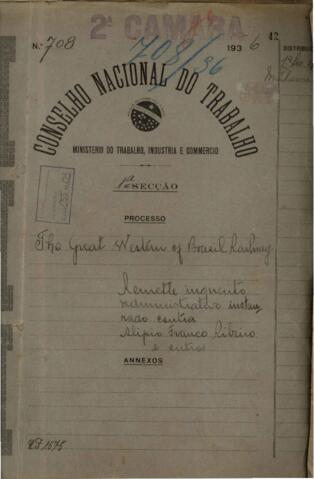 2ª CAMARA
Nº 708
1936
42
DISTRIBU
708/36
CONSELHO NACIONAL DO TRABALHO
MINISTERIO DO TRABALHO, INDUSTRIA E COMMERCIO
1ª SECÇÃO
PROCESSO
The Great Western of Brasil Railway
Remette inquerito
administrativo instau-
rado contra
Alipio Franco Ribeiro
e outros
ANNEXOS